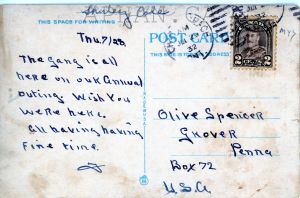 THIS SPACE FOR WRITING
Thu. 7/28
The gang is all
here on our Annual
outing. Wish You
were here.
all having having
Fine time.
POST CARD
32
2
Olive Spencer
Grover
Penna
Box 72
U.S.A